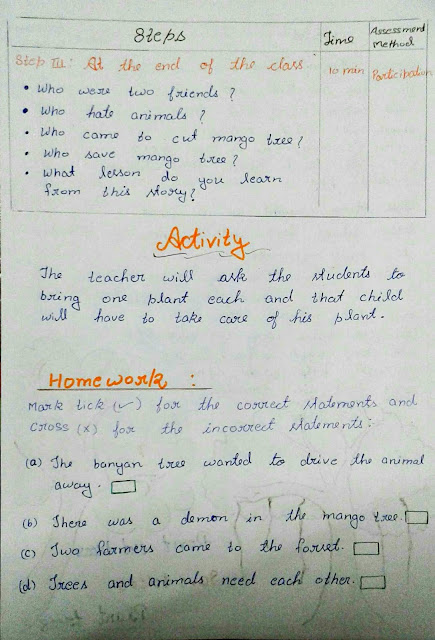 Steps
Time
Assessment Method
Step III: At the end of the class
10 min
Participation
• Who were two friends ?
• Who hate animals ?
• Who came to cut mango tree ?
• Who save mango tree ?
• What lesson do you learn
from this story?
Activity
The teacher will ask the students to
bring one plant each and that child
will have to take care of his plant.
Homework :
Mark tick (✓) for the correct statements and
cross (x) for the incorrect statements:
(a) The banyan tree wanted to drive the animal
away.
(b) There was a demon in the mango tree.
(c) Two farmers came to the forset.
(d) Trees and animals need each other.